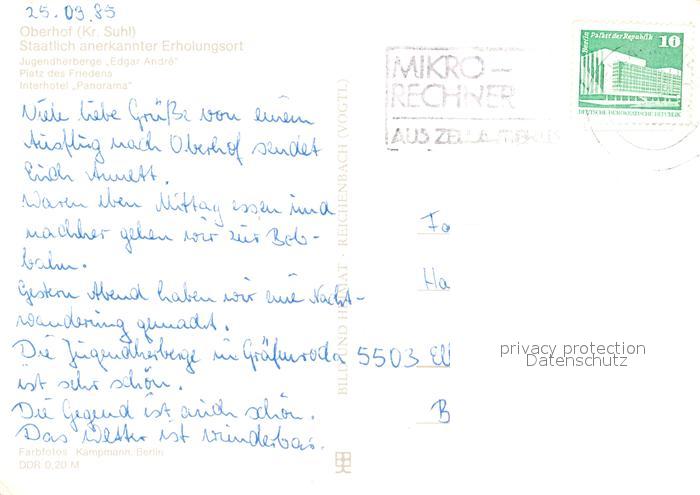 25.09.85
Oberhof (Kr. Suhl)
Staatlich anerkannter Erholungsort
Jugendherberge „Edgar André"
Platz des Friedens
Interhotel „Panorama"
Viele liebe Grüße von einem
Ausflug nach Oberhof sendet
Euch Annett.
Waren eben Mittag essen und
nachher gehen wir zur Bob-
bahn.
Gestern Abend haben wir eine Nacht-
wanderung gemacht.
Die Jugendherberge in Gräfenroda
ist sehr schön.
Die Gegend ist auch schön.
Das Wetter ist wunderbar.
Farbfotos Kampmann, Berlin
DDR 0,20 M
BILD UND HEIMAT · REICHENBACH (VOGTL)
MIKRO-
RECHNER
AUS ZELLA-MEHLIS
Berlin Palast der Republik
10
DEUTSCHE DEMOKRATISCHE REPUBLIK
Fa
Ha
5503 Ell
B
privacy protection
Datenschutz